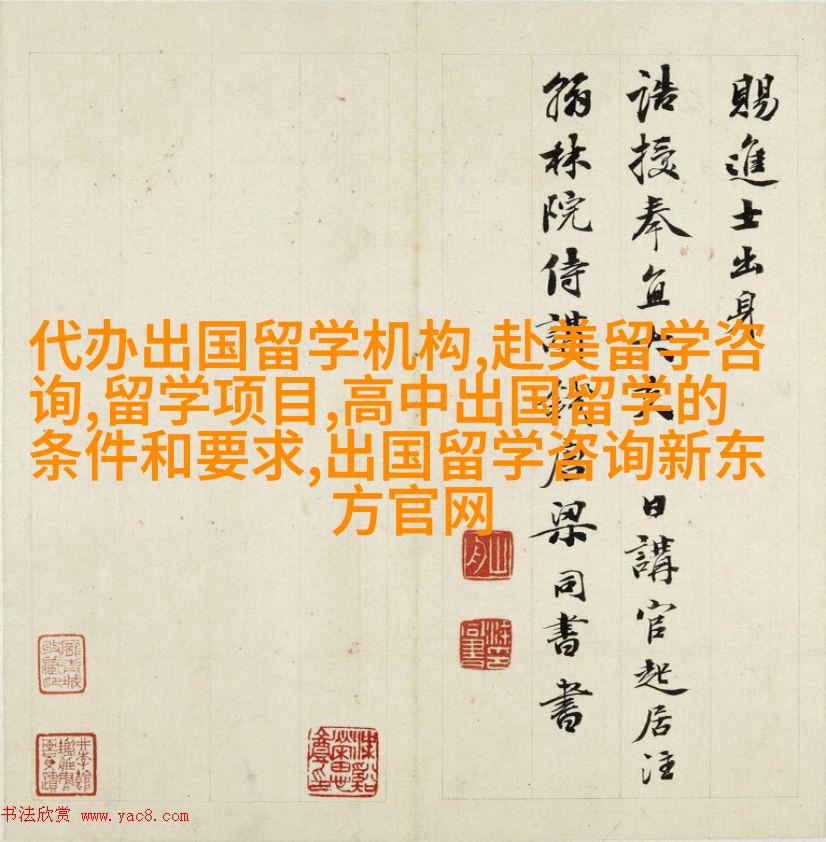 賜進士出身
誥授奉直大夫
日講官起居注
翰林院侍講錢唐梁同書書
代办出国留学机构,赴美留学咨
询,留学项目,高中出国留学的
条件和要求,出国留学咨询新东
方官网
书法欣赏 www.yac8.com